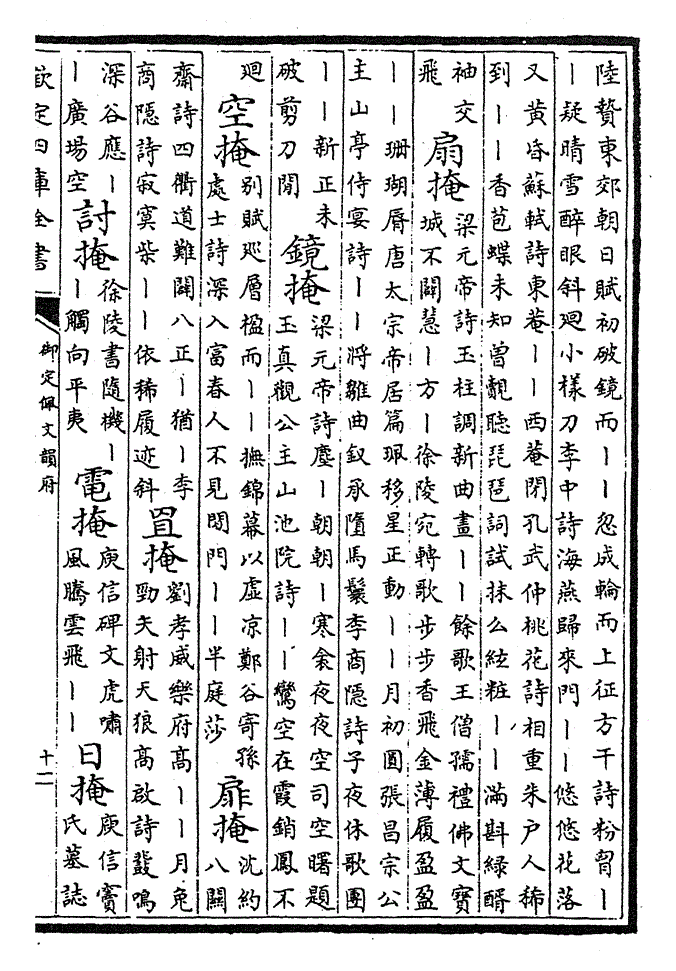 陸贄東郊朝日賦初破鏡而丨丨忽成輪而上征方干詩粉胷丨
丨疑晴雪醉眼斜廻小樣刀李中詩海燕歸來門丨丨悠悠花落
又黄昏蘇軾詩東菴丨丨西菴閉孔武仲桃花詩相重朱户人稀
到丨丨香苞蝶未知曾覿聽琵琶詞試抹么絃粧丨丨滿斟緑醑
袖交
飛
扇掩
梁元帝詩玉柱調新曲畫丨丨餘歌王僧孺禮佛文寳
城不關慧丨方丨徐陵宛轉歌步步香飛金薄履盈盈
丨丨珊瑚脣唐太宗帝居篇珮移星正動丨丨月初圓張昌宗公
主山亭侍宴詩丨丨將雛曲釵承墮馬鬟李商隱詩子夜休歌團
丨丨新正未
破剪刀閒
鏡掩
梁元帝詩塵丨朝朝丨寒衾夜夜空司空曙題
玉真觀公主山池院詩丨丨鸞空在霞銷鳳不
廻
空掩
別賦廵層楹而丨丨撫錦幕以虚凉鄭谷寄孫
處士詩深入富春人不見閒門丨丨半庭莎
扉掩
沈約
八關
齋詩四衢道難闢八正丨猶丨李
商隱詩寂寞柴丨丨依稀履迹斜
罝掩
劉孝威樂府高丨丨月兔
勁矢射天狼高啟詩發鳴
深谷應丨
丨廣場空
討掩
徐陵書隨機丨
丨觸向平夷
電掩
庾信碑文虎嘯
風騰雲飛丨丨
日掩
庾信竇
氏墓誌
欽定四庫全書
御定佩文韻府
十二